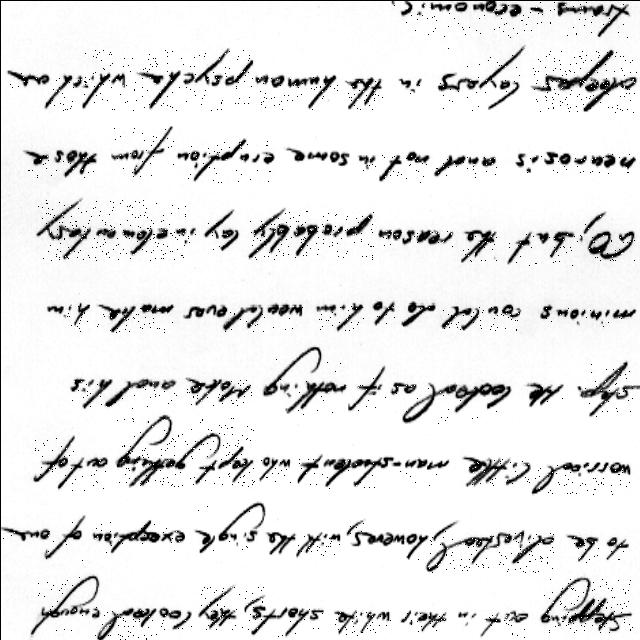 Stepping out in their white shorts, they looked enough
to be divested, however, with the single exception of one
worried little man-student who kept getting out of
step. He looked as if nothing Mote and his
minions could do to him would ever make him
GO; but the reason probably lay
neurosis and not in some eruption from those
deeper layers in the human psyche which are
trans-economic.